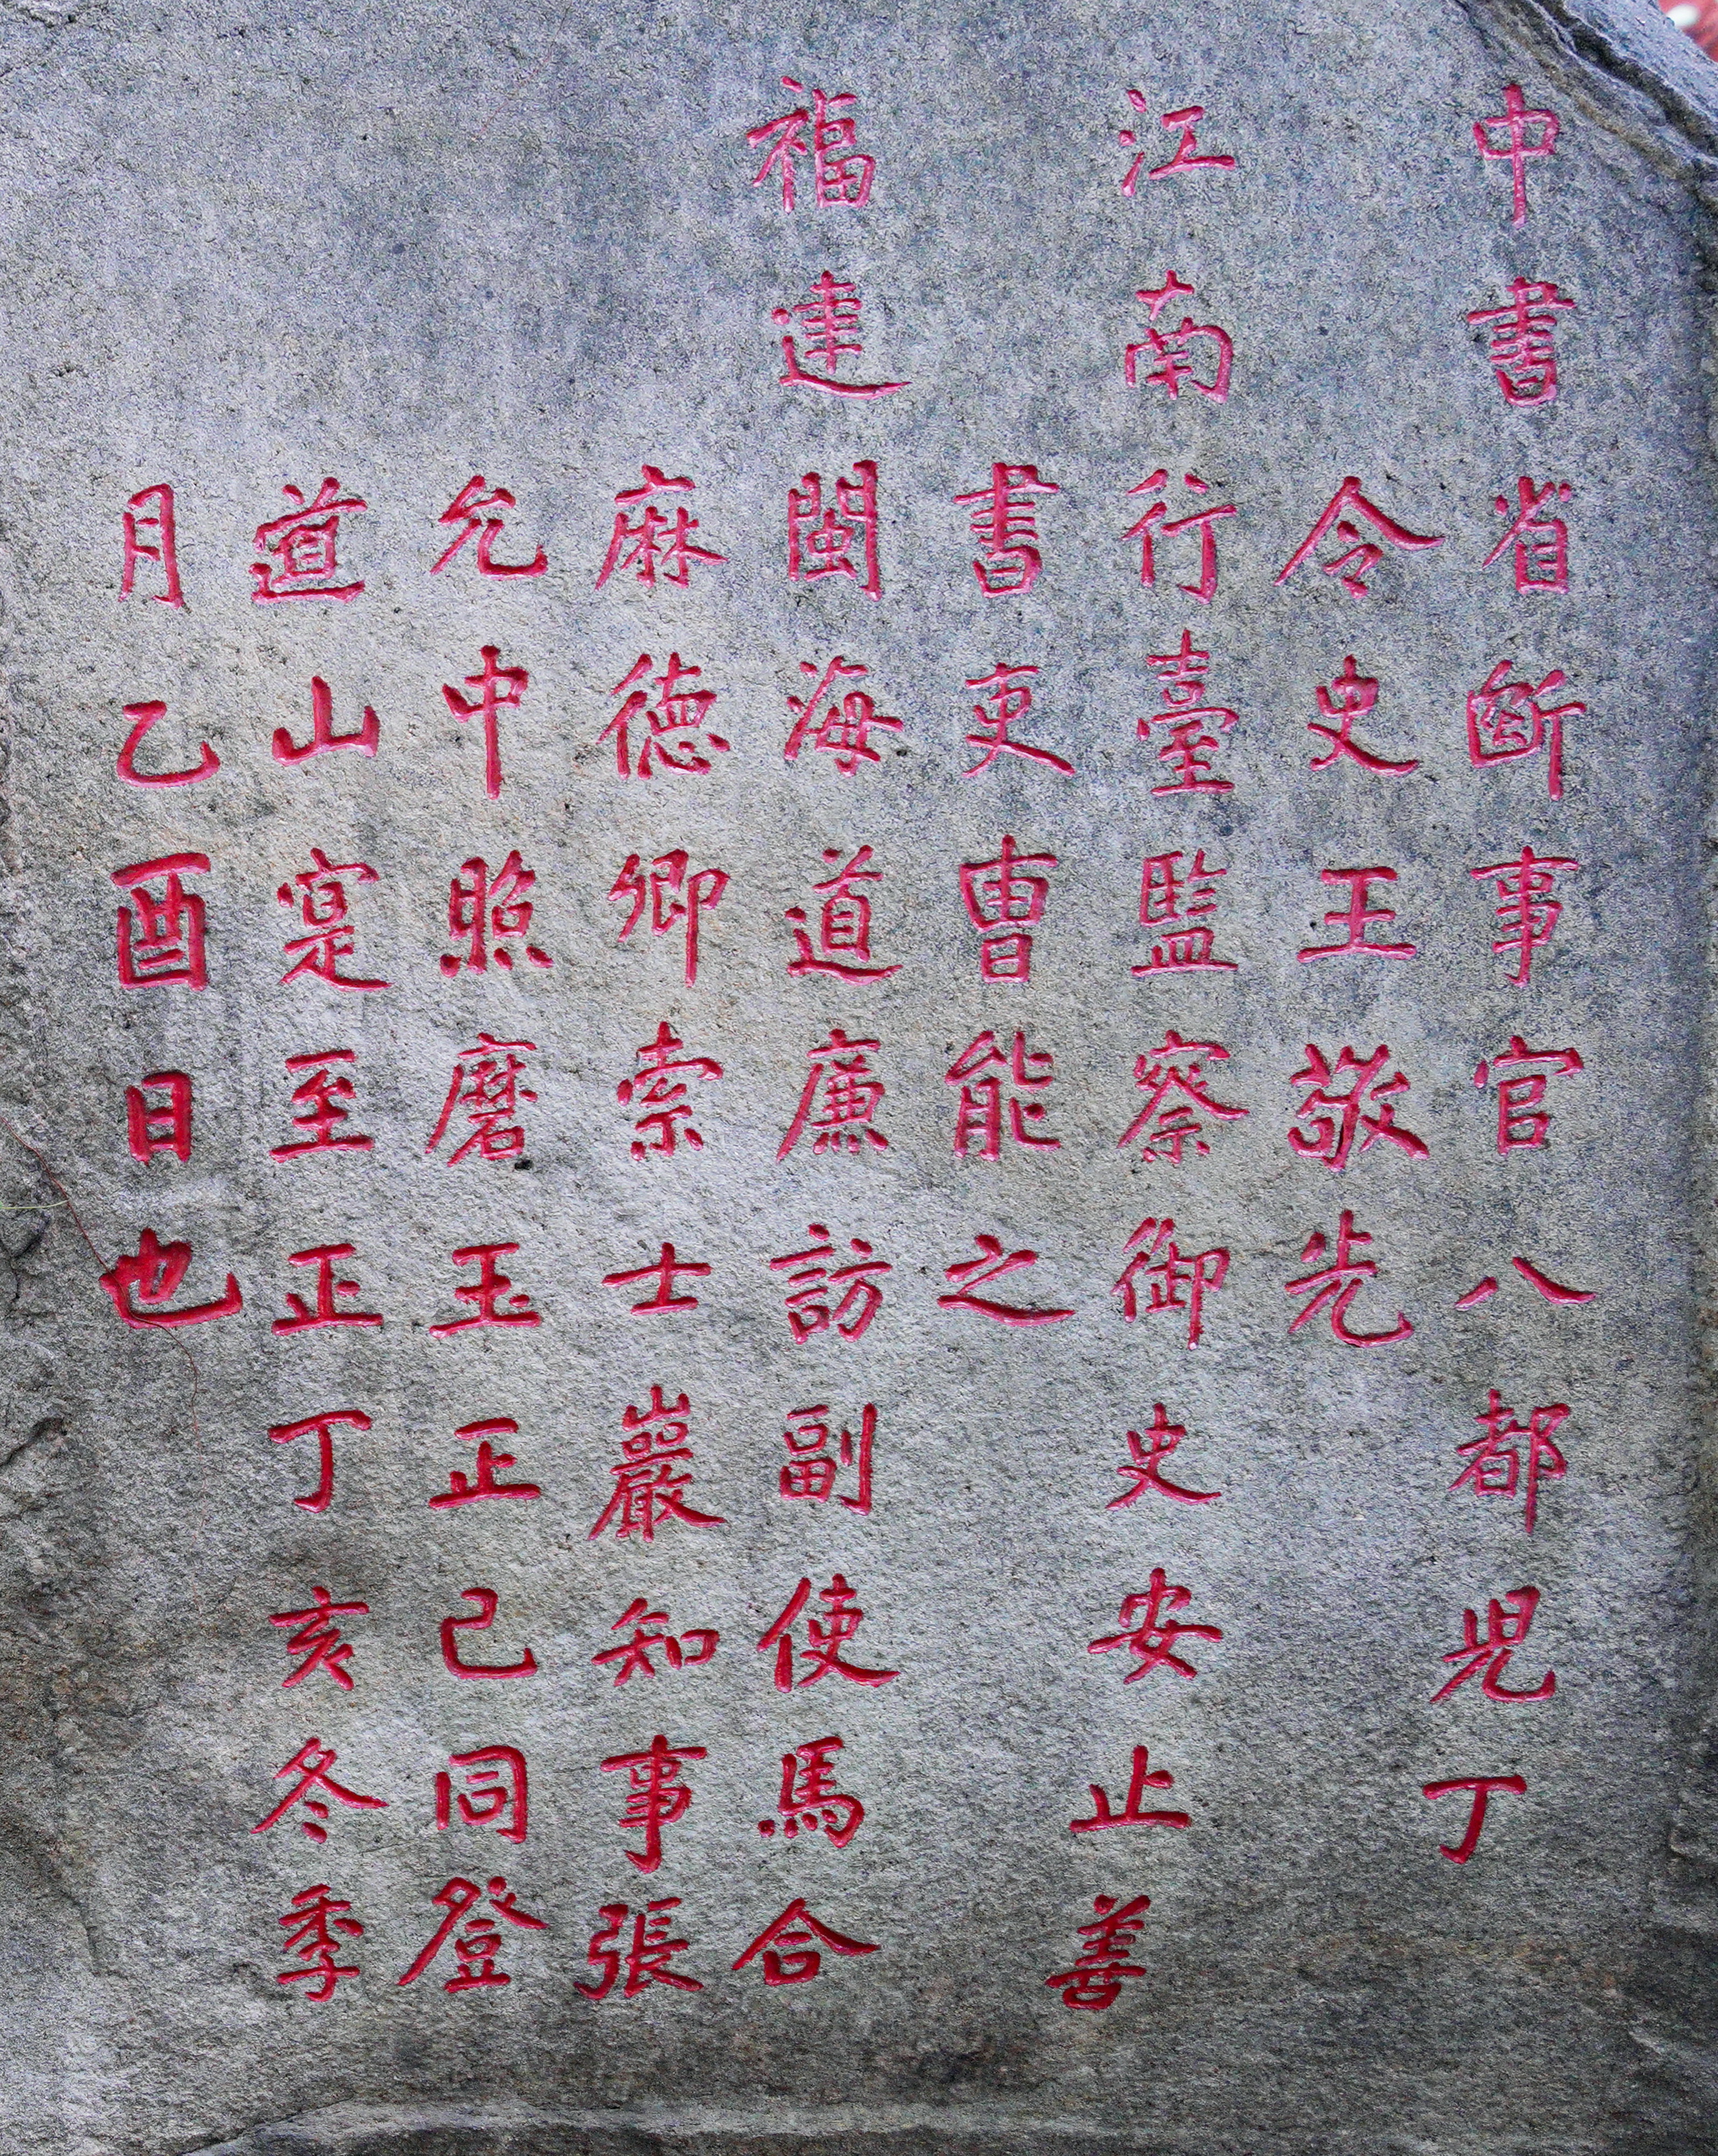 中書省断事官八都児丁
令史王敬先
江南行臺監察御史安止善
書吏曹能之
福建閩海道廉訪副使馬合
麻德卿索士巖知事張
允中照磨玉正己同登
道山寔至正丁亥冬季
月乙酉日也